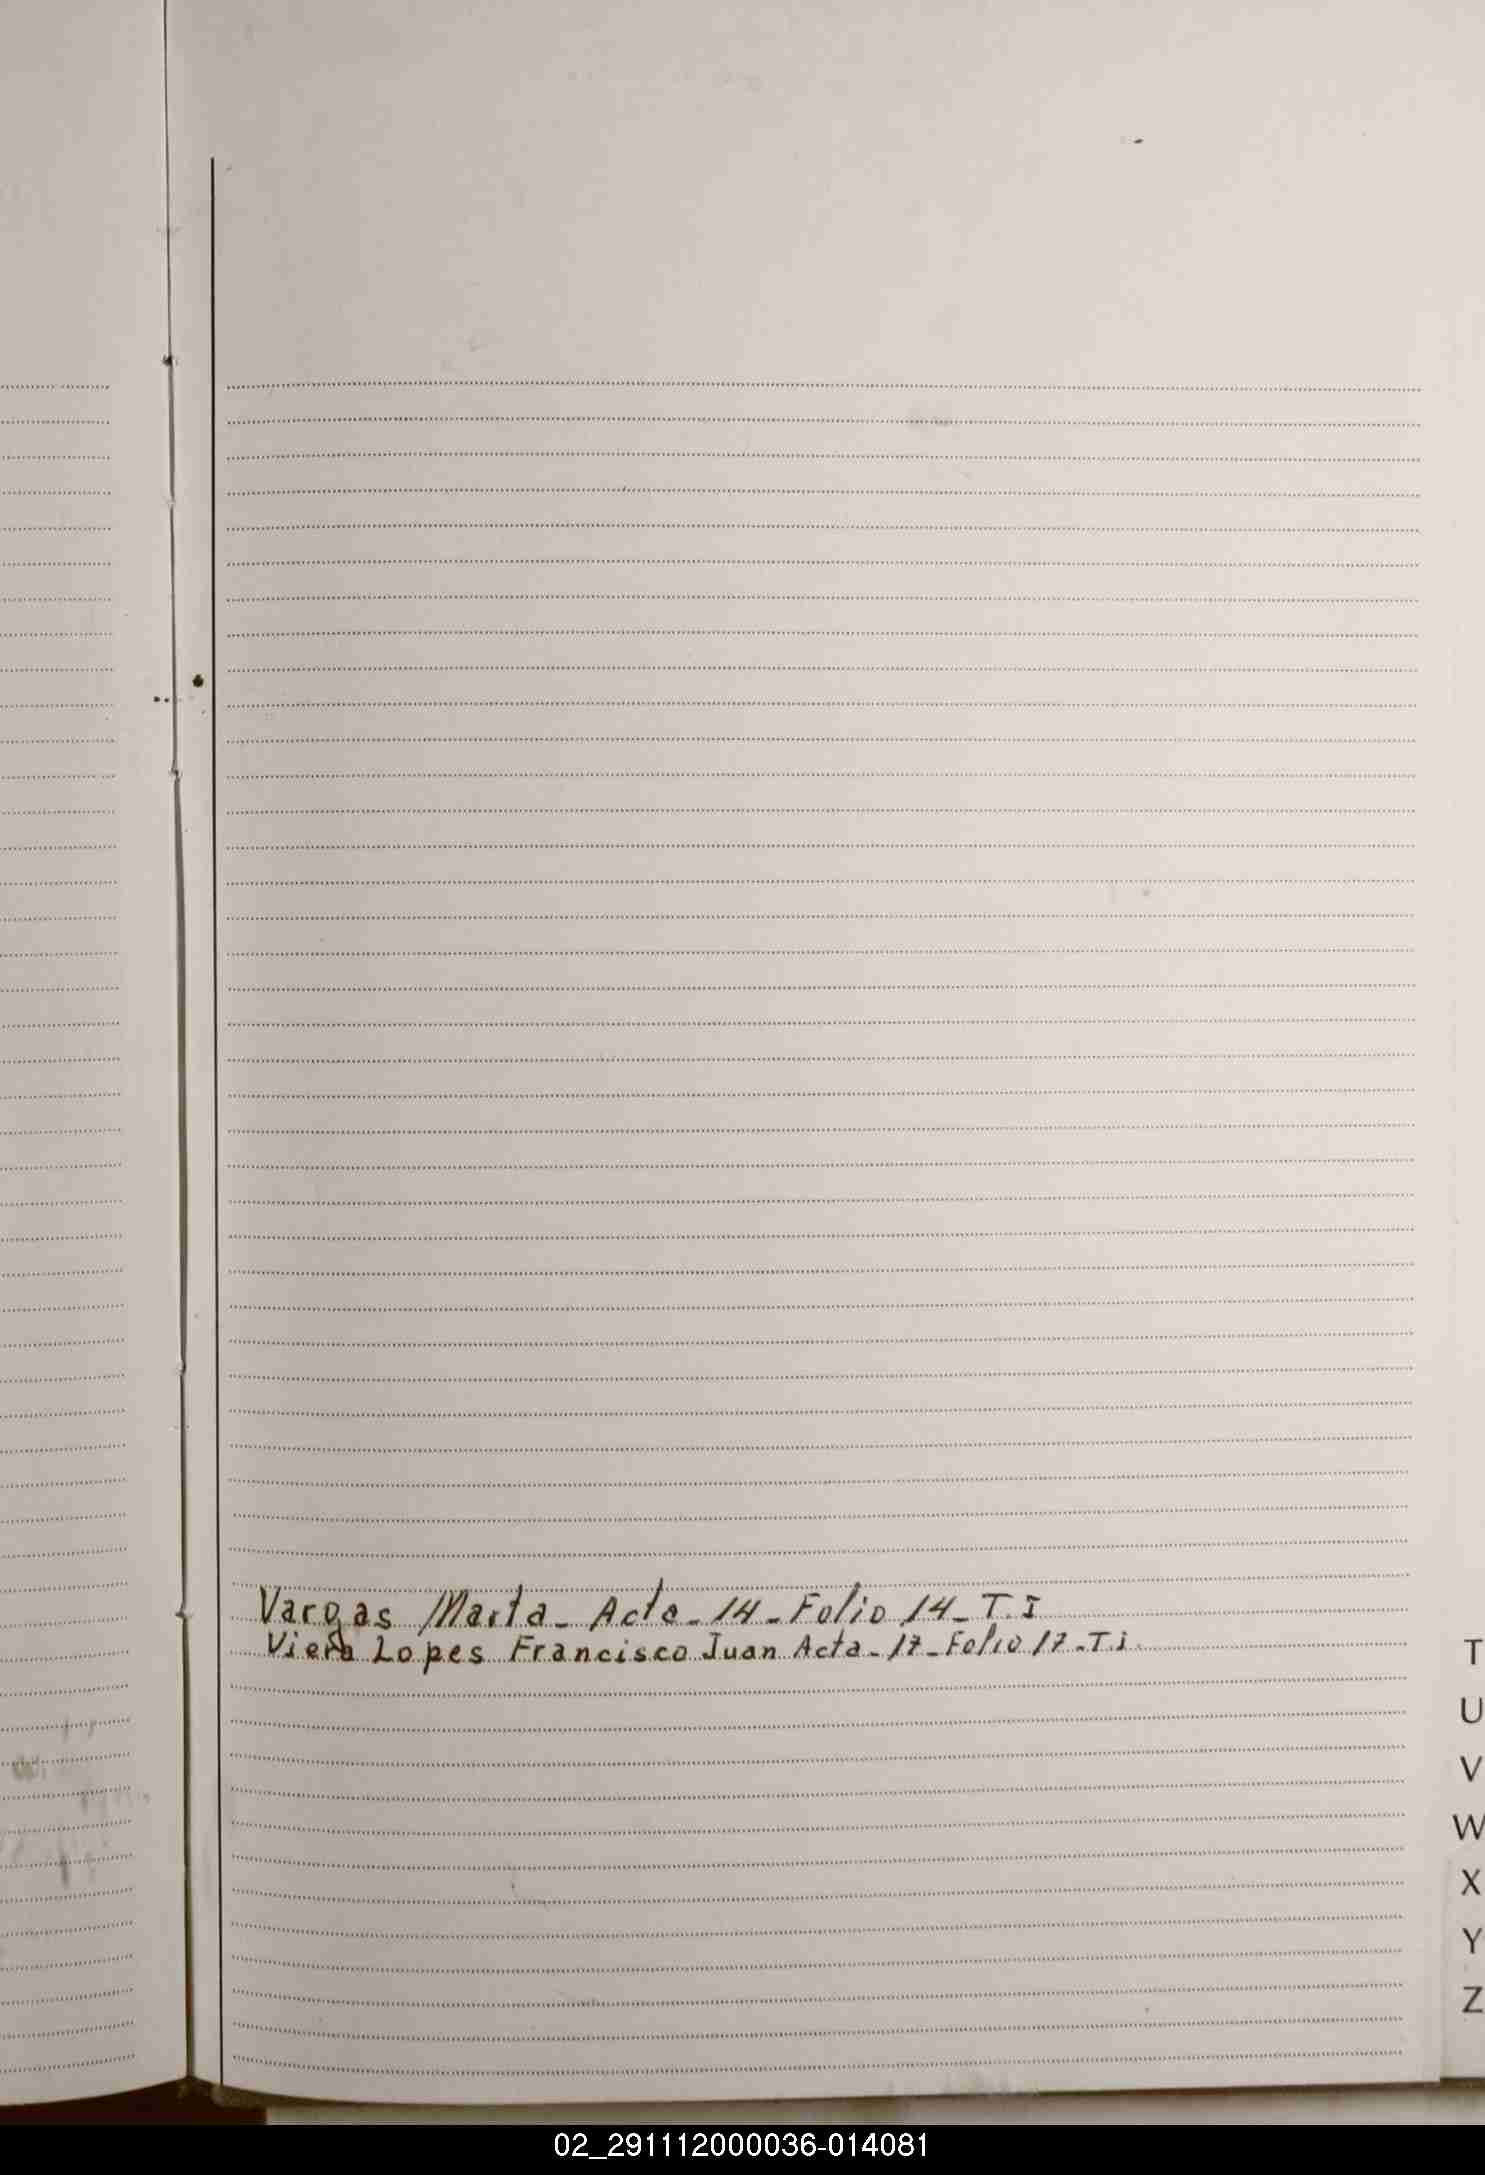 Vargas Marta - Acta - 14 - Folio 14 - T. I
Viera Lopes Francisco Juan Acta - 17 - Folio 17 - T. i.
T
U
V
W
X
Y
Z
02_291112000036-014081